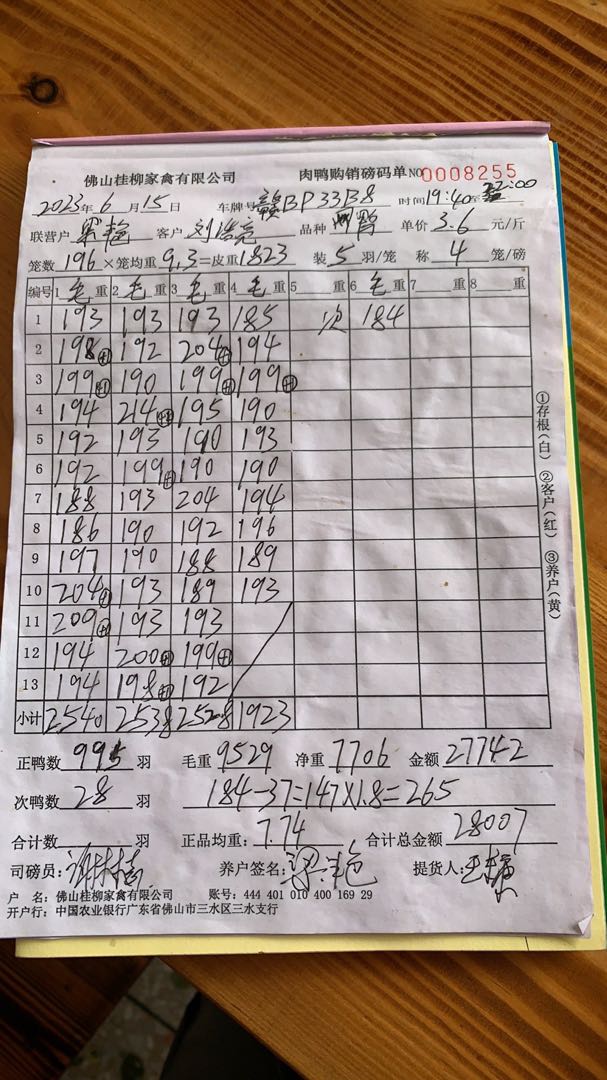 佛山桂柳家禽有限公司 肉鸭购销磅码单 NO 0008255
2023年6月15日 车牌号 赣BP33B8 时间 19:40至22:00
联营户 梁艳 客户 刘浩亮 品种 单价 3.6 元/斤
笼数 196 ×笼均重 9.3 =皮重 1823 装 5 羽/笼 称 4 笼/磅
编号 1 毛 重 2 毛 重 3 毛 重 4 毛 重 5 重 6 毛 重 7 重 8 重
1 193 193 193 185 次 184
2 198 192 204 194
3 199 190 199 199
4 194 214 195 190
5 192 193 190 193
6 192 199 190 190
7 188 193 204 194
8 186 190 192 196
9 197 190 188 189
10 204 193 189 193
11 209 193 193
12 194 200 199
13 194 198 192
小计 2540 2538 2528 1923
①存根(白) ②客户(红) ③养户(黄)
正鸭数 995 羽 毛重 9529 净重 7706 金额 27742
次鸭数 28 羽 184-37=147×1.8=265
合计数 羽 正品均重: 7.74 合计总金额 28007
司磅员: 养户签名: 提货人:
户 名: 佛山桂柳家禽有限公司 账号: 444 401 010 400 169 29
开户行: 中国农业银行广东省佛山市三水区三水支行